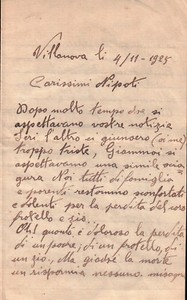 Villanova li 4/11-1925
Carissimi Nipoti
Dopo molto tempo che si
aspettavano vostre notizie
Ieri l'altro si giunsero (oimé)
troppo triste, Giammai si
aspettavamo una simile sciag
ura Noi tutti di famiglia
e parenti restammo sconfortati
e dolenti per la perdita del caro
fratello e zio.
Oh! quanto è doloroso la perdita
di un padre; di un fratello, di
un zio, Ma giacchè la morte
non risparmia nessuno bisogna